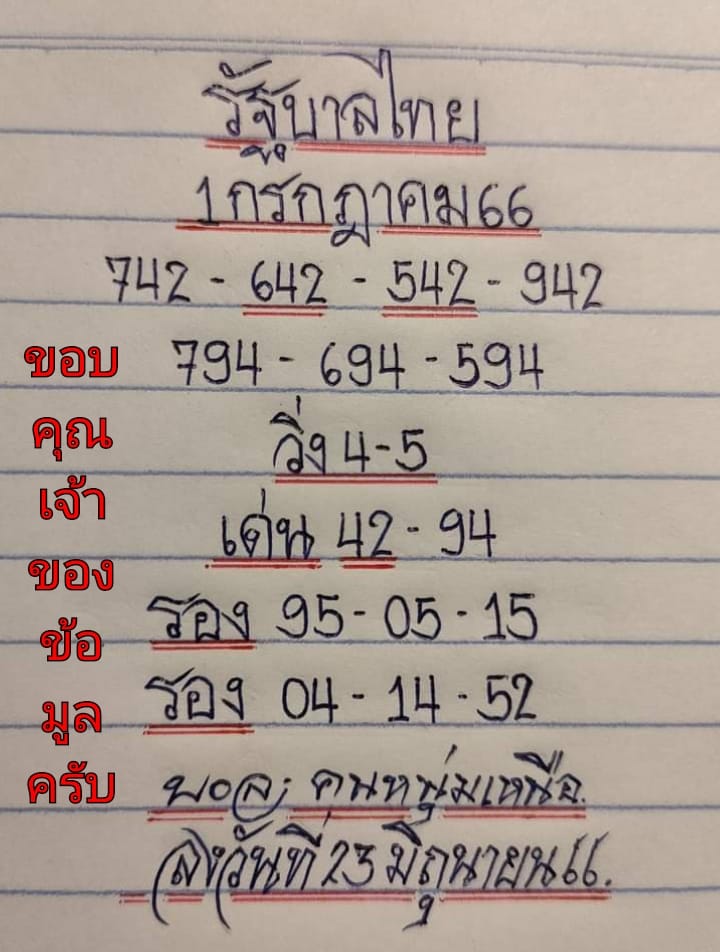 รัฐบาลไทย
1 กรกฎาคม 66
742 - 642 - 542 - 942
794 - 694 - 594
วิ่ง 4-5
เด่น 42 - 94
รอง 95 - 05 - 15
รอง 04 - 14 - 52
คนหนุ่มเหนือ.
วันที่ 23 มิถุนายน 66.
ขอบ
คุณ
เจ้า
ของ
ข้อ
มูล
ครับ